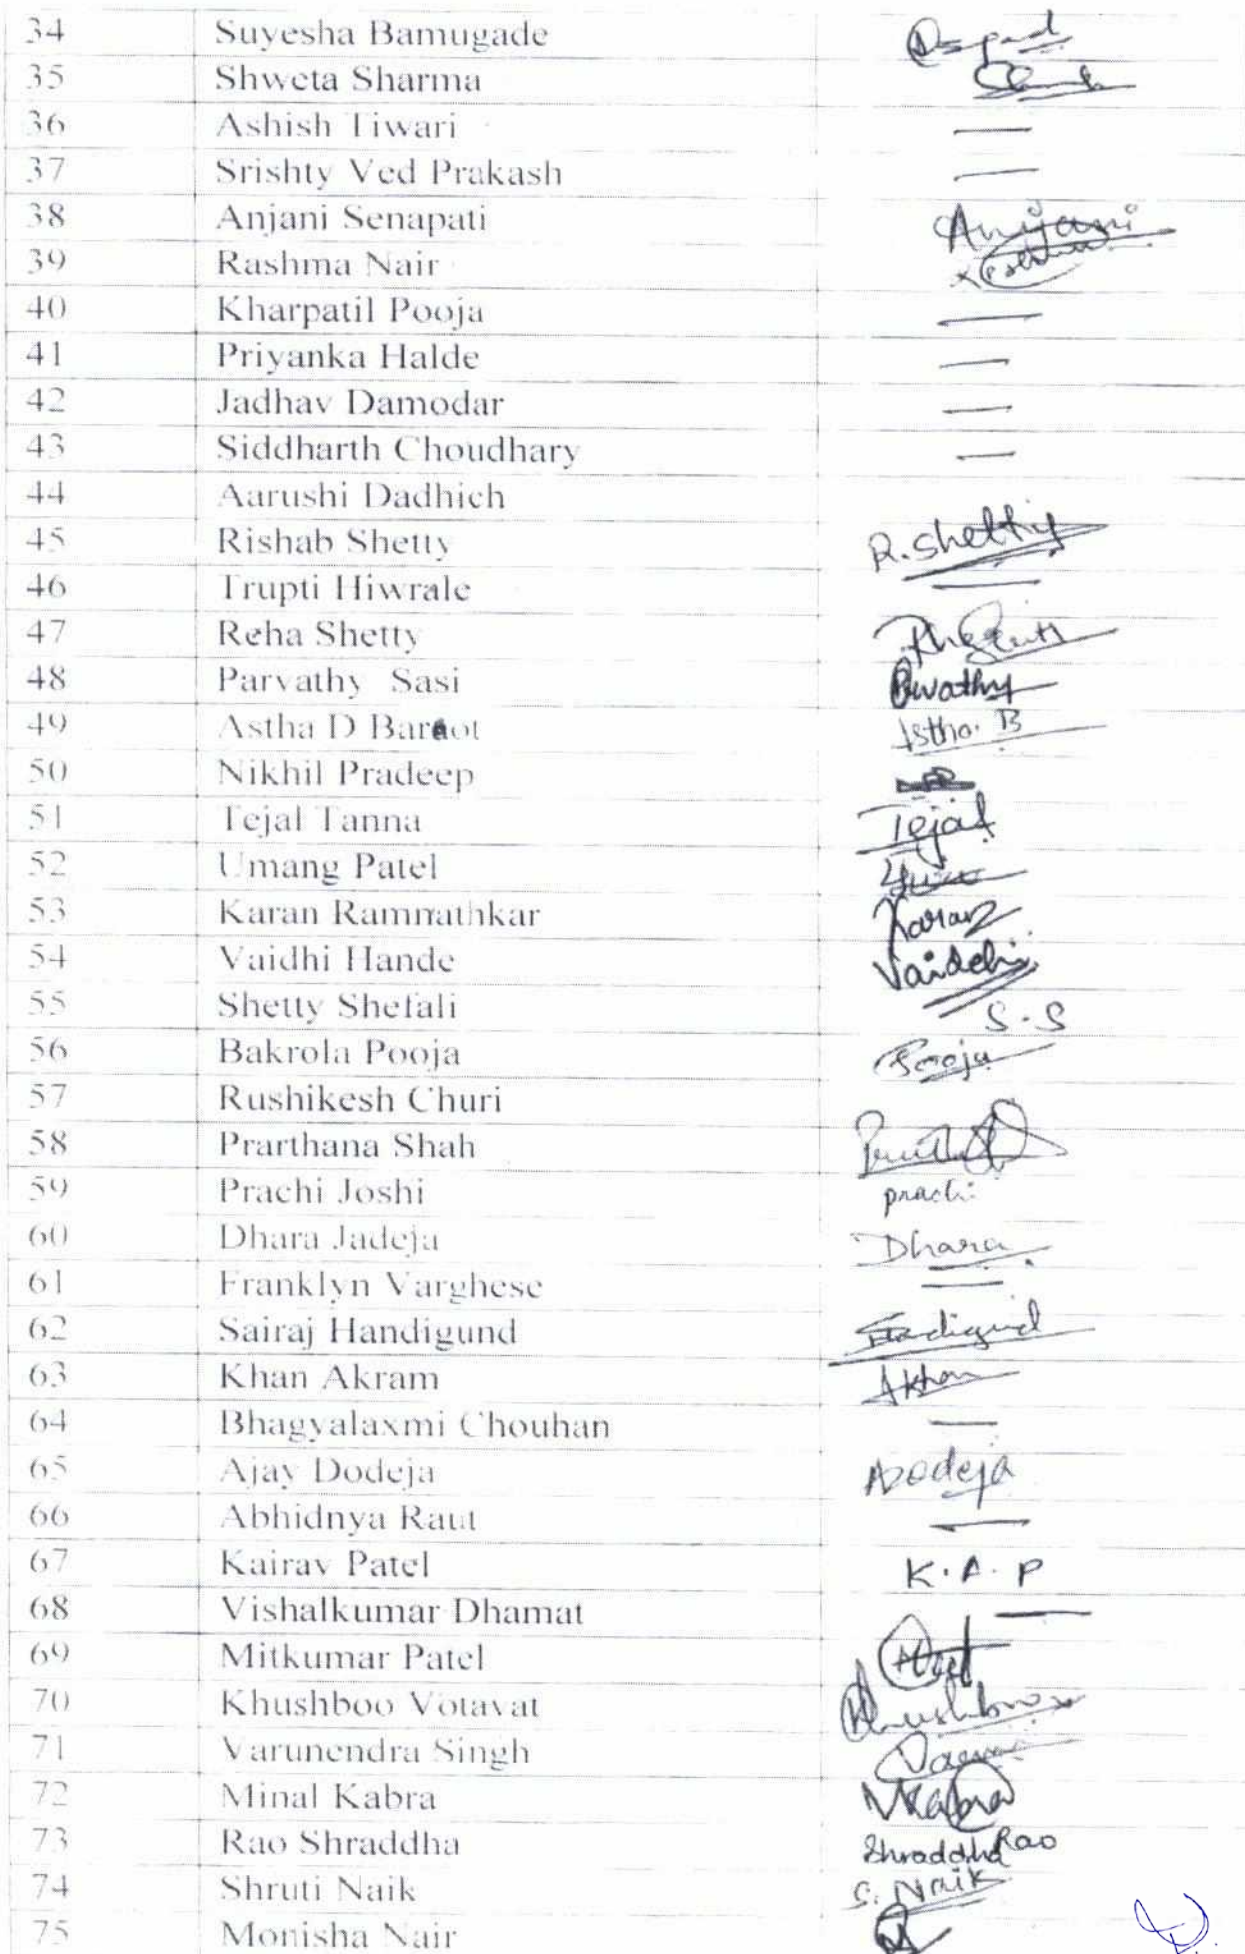 34 Suyesha Bamugade
35 Shweta Sharma
36 Ashish Tiwari —
37 Srishty Ved Prakash —
38 Anjani Senapati Anjani
39 Rashma Nair
40 Kharpatil Pooja —
41 Priyanka Halde —
42 Jadhav Damodar —
43 Siddharth Choudhary —
44 Aarushi Dadhich
45 Rishab Shetty R. Shetty
46 Trupti Hiwrale —
47 Reha Shetty
48 Parvathy Sasi
49 Astha D Barot Astha. B
50 Nikhil Pradeep
51 Tejal Tanna Tejal
52 Umang Patel
53 Karan Ramnathkar Karan
54 Vaidhi Hande Vaidehi
55 Shetty Shefali S.S
56 Bakrola Pooja Pooja
57 Rushikesh Churi
58 Prarthana Shah
59 Prachi Joshi prachi
60 Dhara Jadeja Dhara
61 Franklyn Varghese —
62 Sairaj Handigund Handigund
63 Khan Akram AKhan
64 Bhagyalaxmi Chouhan —
65 Ajay Dodeja ADodeja
66 Abhidnya Raut —
67 Kairav Patel K.A.P
68 Vishalkumar Dhamat —
69 Mitkumar Patel
70 Khushboo Votavat Khushboo
71 Varunendra Singh
72 Minal Kabra MKabra
73 Rao Shraddha Shraddha Rao
74 Shruti Naik S. Naik
75 Monisha Nair